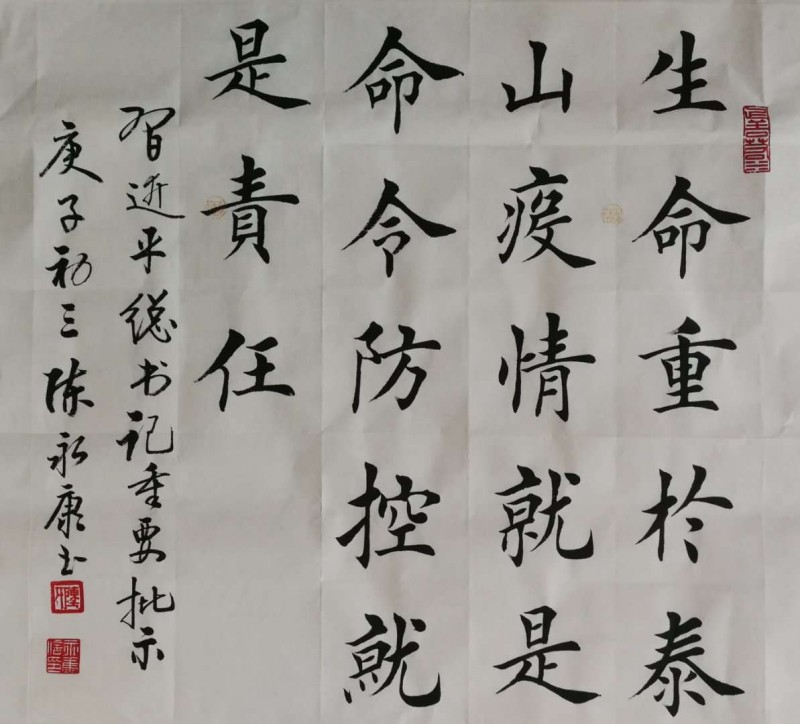 生命重於泰
山疫情就是
命令防控就
是責任
習近平總书记重要批示
庚子初三陈永康书